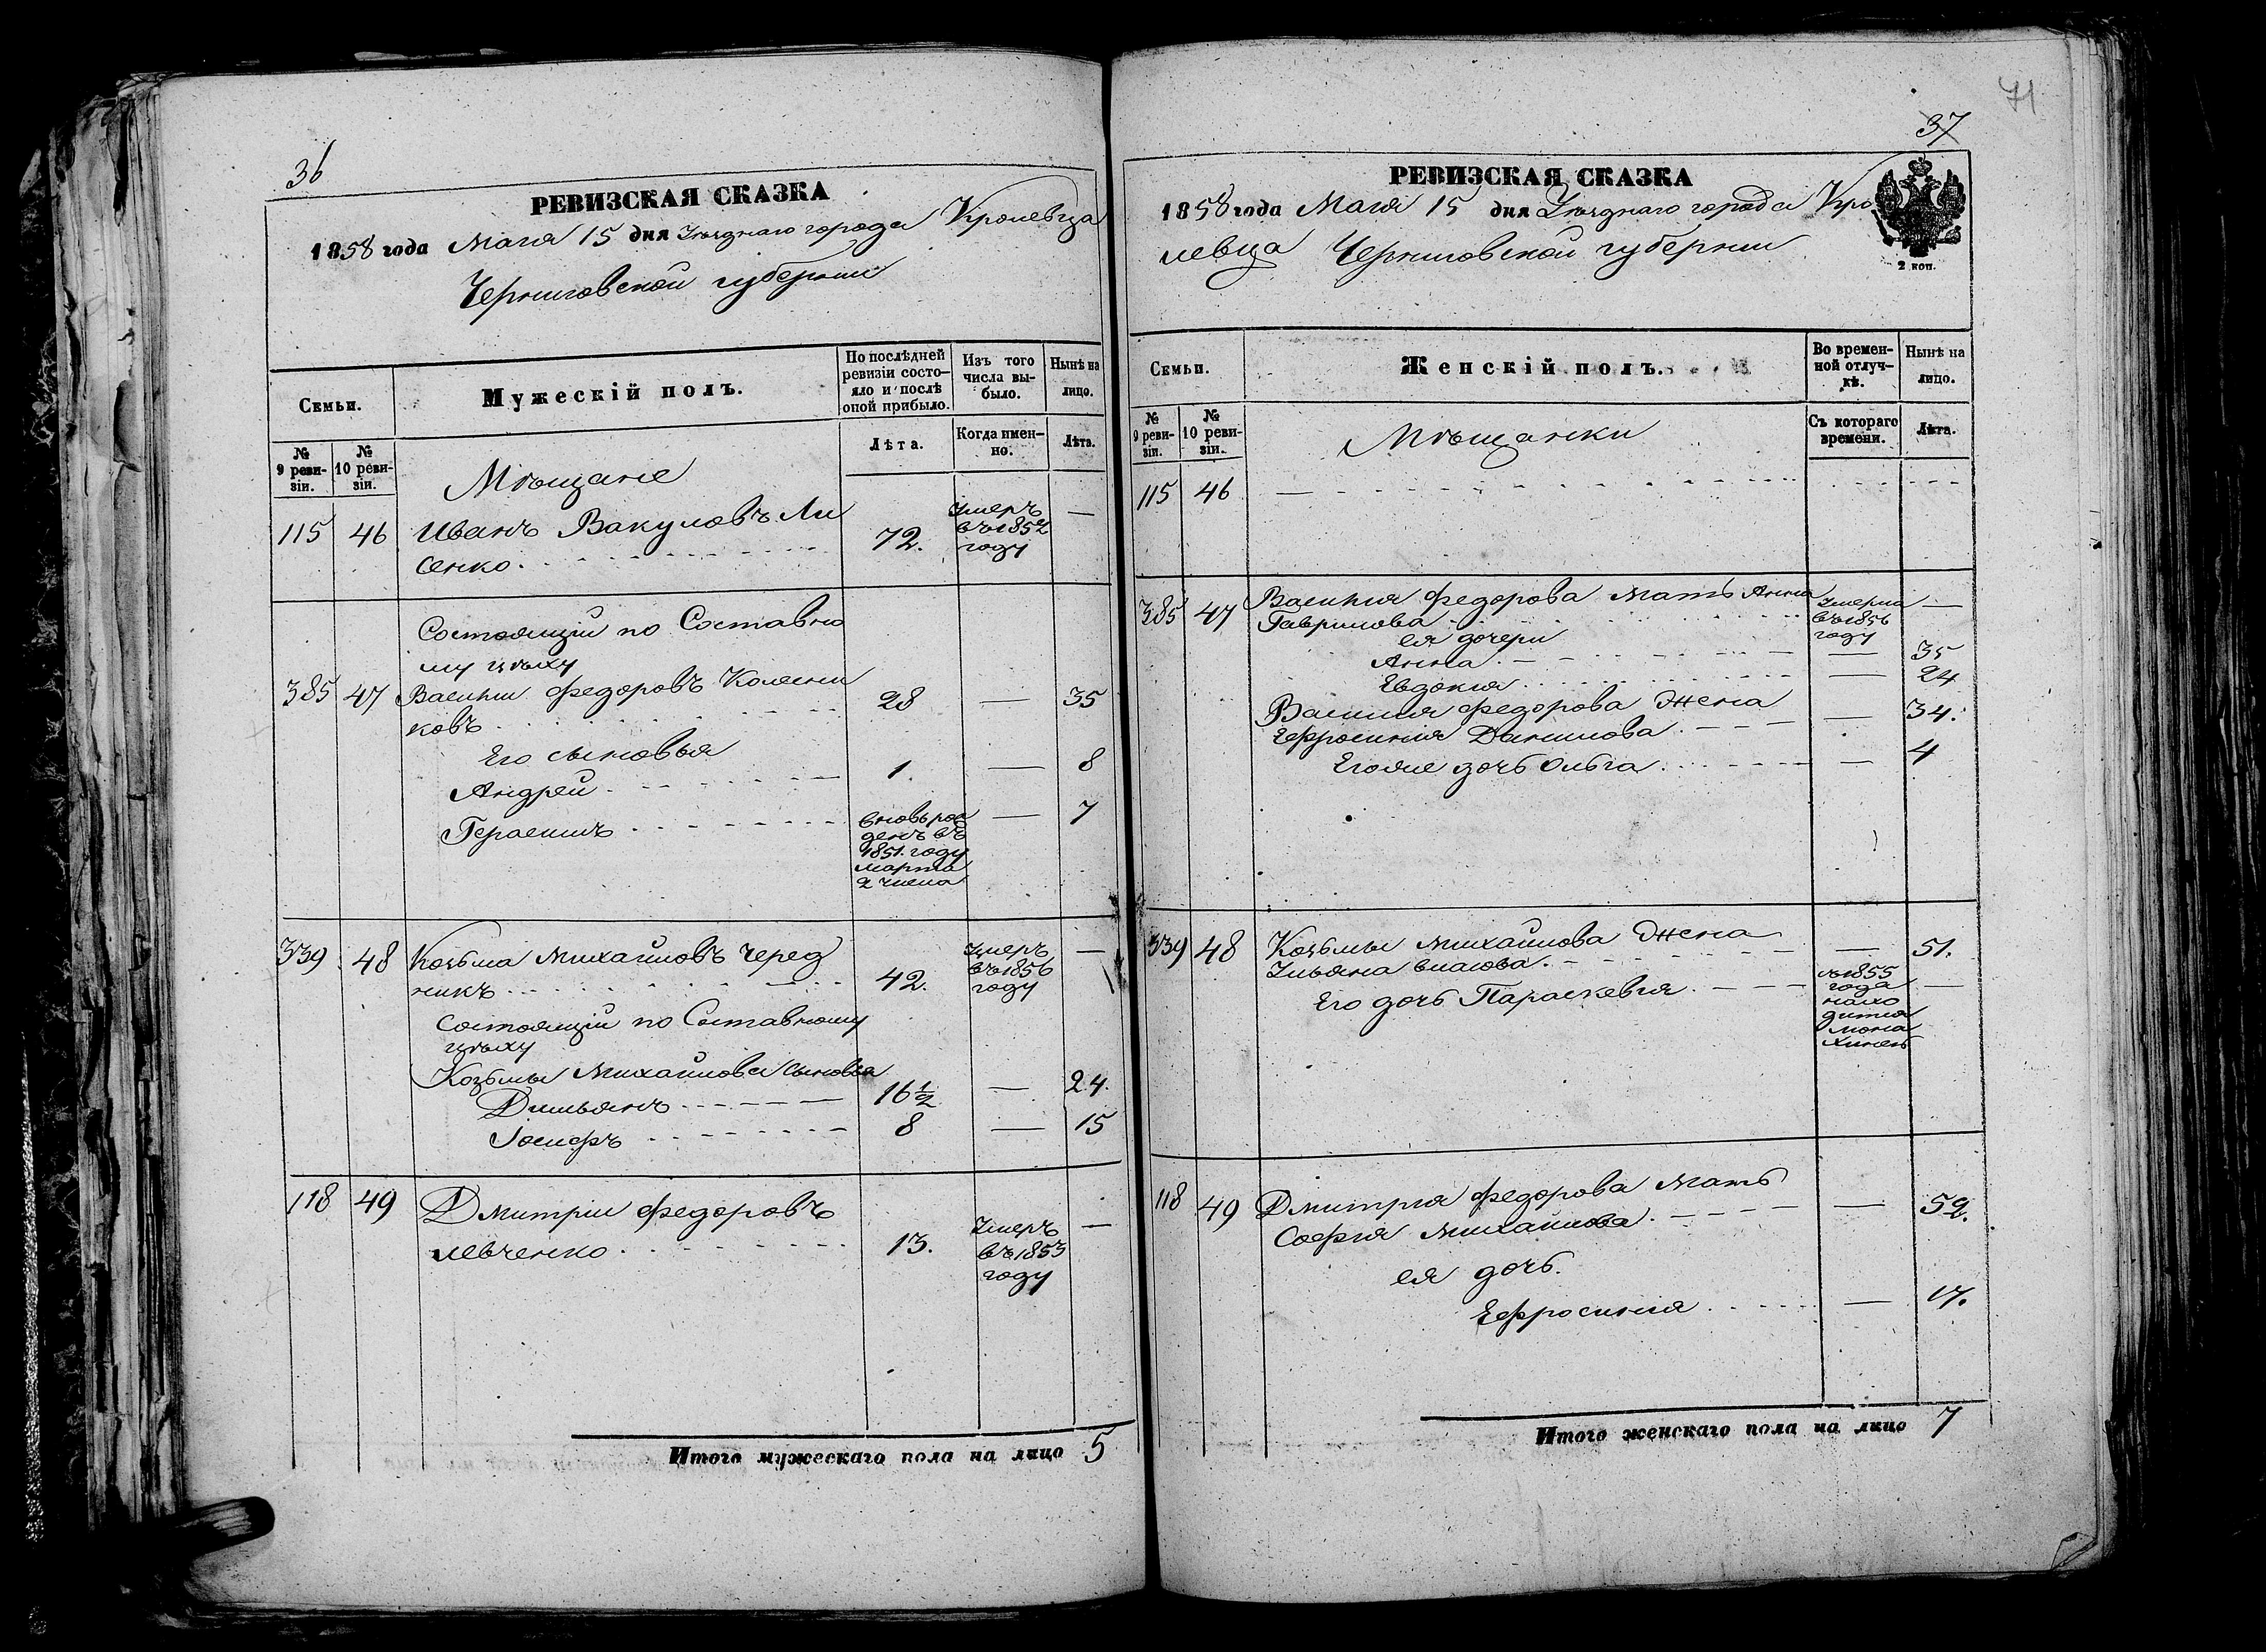 36
РЕВИЗСКАЯ СКАЗКА
1858 года Маія 15 дня Уѣзднаго города Кролевца
Черниговской губерніи
Семьи.
Мужескій полъ.
По послѣдней ревизіи состо-
яло и послѣ
оной прибыло.
Изъ того
числа вы-
было.
Нынѣ на
лицо.
№
9 реви-
зіи.
№
10 реви-
зіи.
Лѣта.
Когда имен-
но.
Лѣта.
Мѣщане
115 46 Иванъ Вакуловъ Ли
сенко 72. Умеръ
въ 1852
году —
Состоящій по Составно
му цѣху
385 47 Василій Федоровъ Колесни
ковъ 28 — 35
Его сыновья
Андрей 1. — 8
Герасимъ вновь рож
денъ въ
1851. году
марта
2 числа — 7
339 48 Козьма Михайловъ Черед
никъ 42. Умеръ
въ 1856
году —
Состоящій по Составному
цѣху
Козьмы Михайлова сыновья
Димьянъ 16 1/2 — 24.
Іосифъ 8 — 15
118 49 Дмитрій Федоровъ
Левченко 13. Умеръ
въ 1853
году —
Итого мужескаго пола на лицо 5
71
37
РЕВИЗСКАЯ СКАЗКА
1858 года Маія 15 дня Уѣзднаго города Кро
левца Черниговской губерніи
2 коп.
Семьи.
Женскій полъ.
Во времен-
ной отлуч-
кѣ.
Нынѣ на
лицо.
№
9 реви-
зіи.
№
10 реви-
зіи.
Съ котораго
времени.
Лѣта.
Мѣщанки
115 46 —
385 47 Василія Федорова мать Анна
Гаврилова Умерла
въ 1856
году —
ея дочери
Анна — 35
Евдокія — 24
Василія Федорова жена
Ефросинія Данилова — 34.
Его же дочь Ольга — 4
339 48 Козьмы Михайлова жена
Ульяна Власова — 51.
Его дочь Параскевія съ 1855
года
нахо
дится
мона
хиней —
118 49 Дмитрія Федорова мать
Софія Михайлова — 52.
ея дочь.
Ефросинія — 17.
Итого женскаго пола на лицо 7